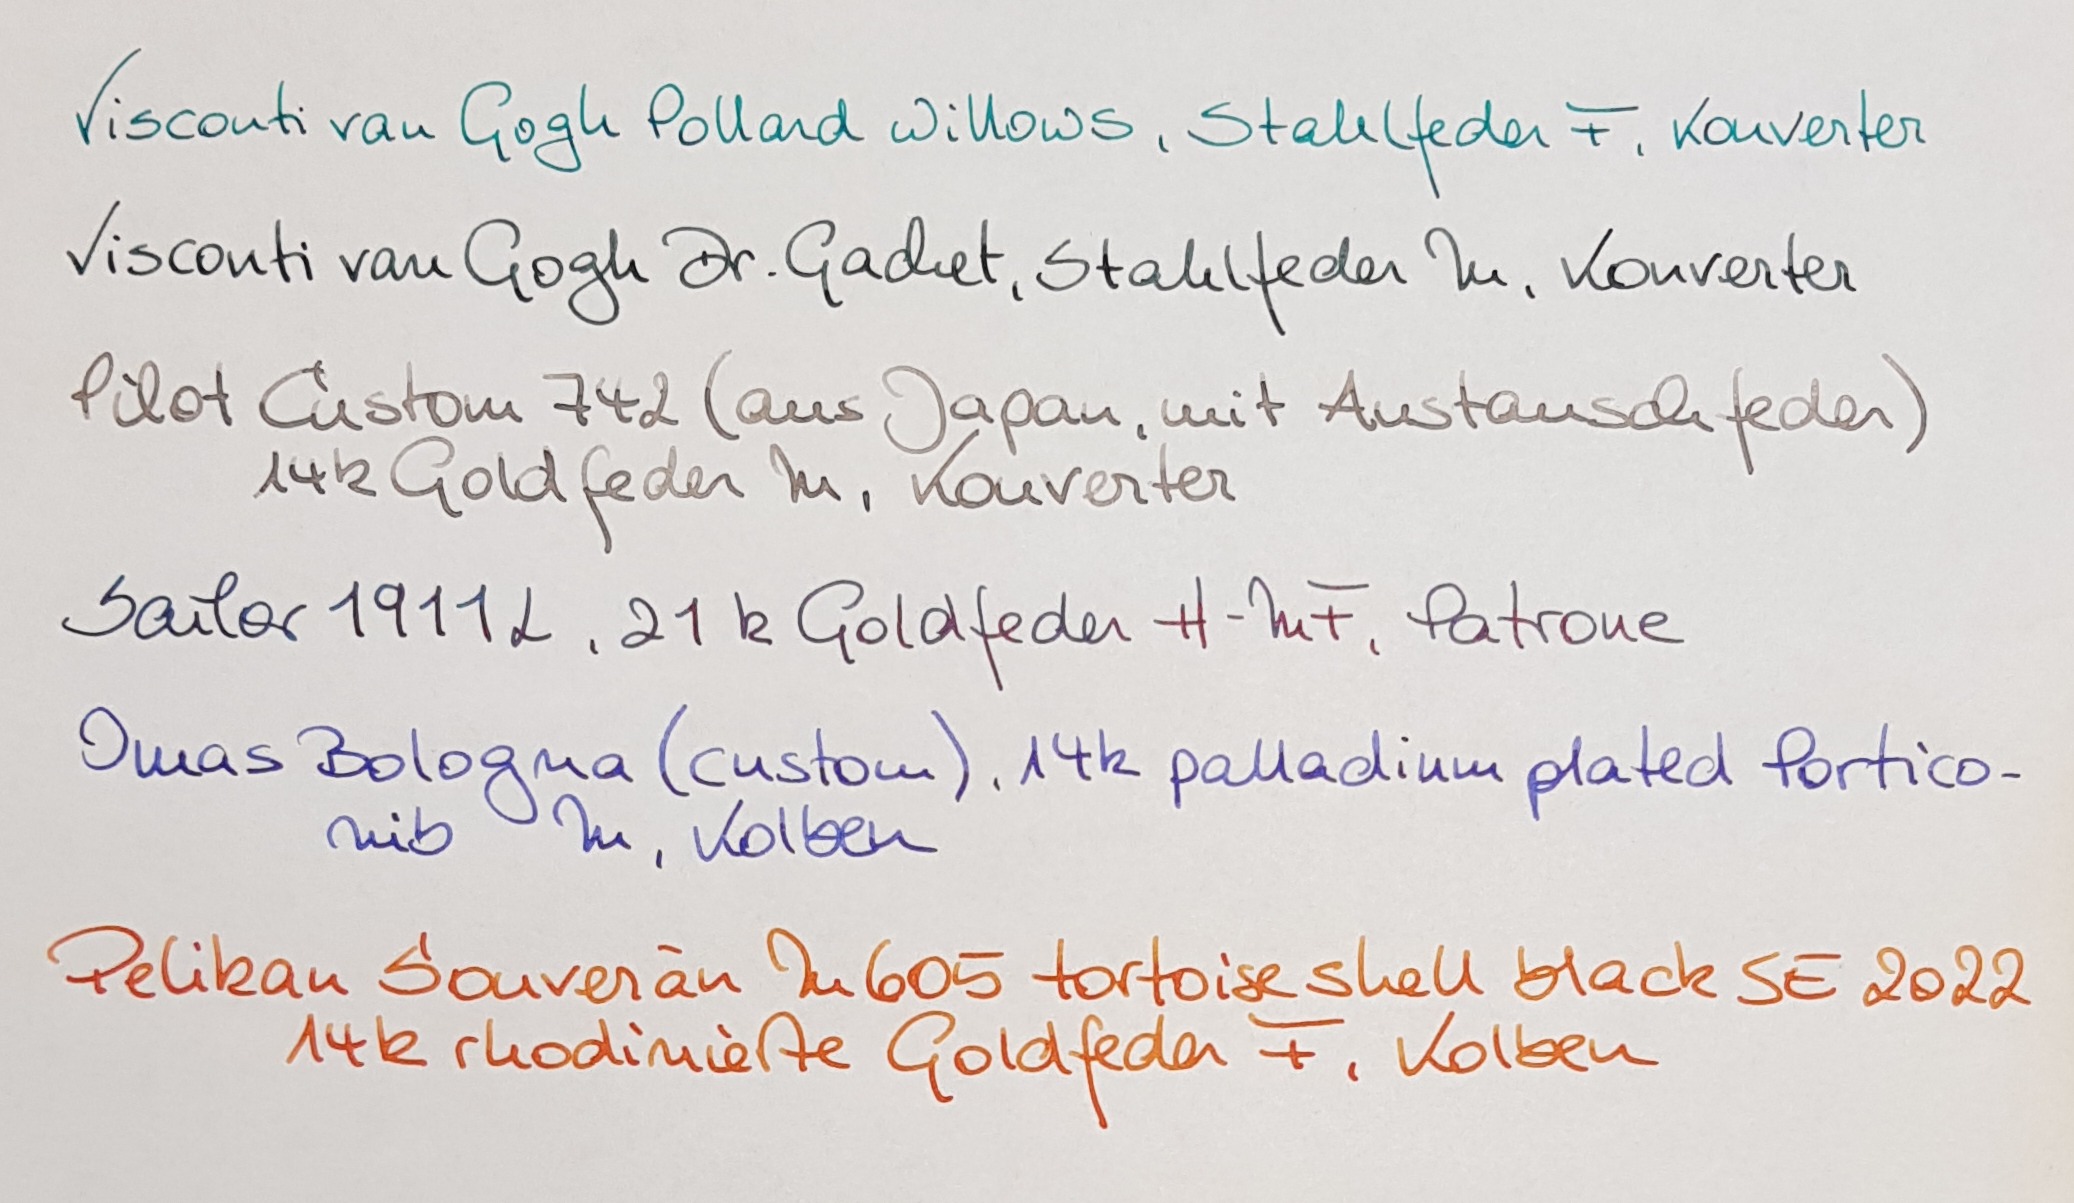 Visconti van Gogh Pollard Willows, Stahlfeder F, Konverter
Visconti van Gogh Dr. Gachet, Stahlfeder M, Konverter
Pilot Custom 742 (aus Japan, mit Austauschfeder)
14k Goldfeder M, Konverter
Sailor 1911L, 21k Goldfeder H-MF, Patrone
Omas Bologna (custom), 14k palladium plated Portico-
nib M, Kolben
Pelikan Souverän M605 tortoiseshell black SE 2022
14k rhodinierte Goldfeder F, Kolben